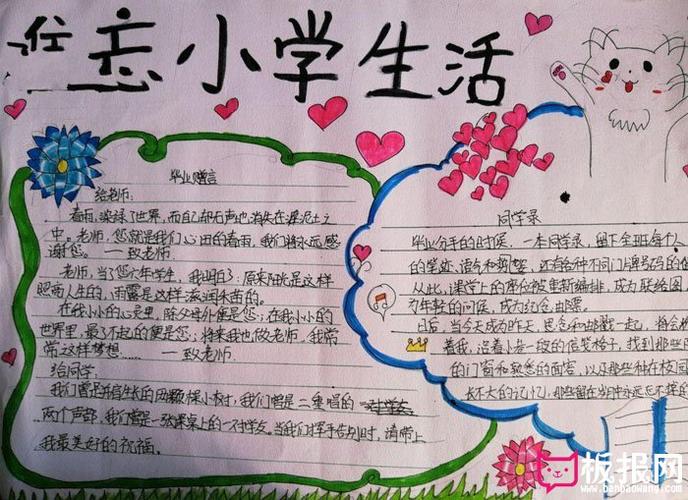 忘小学生活
毕业赠言
给老师:
春雨,染绿了世界,而自己却无声地消失在泥土之
中。老师,您就是我们心田的春雨,我们将永远感
谢您。——致老师
老师,当了您六年学生,我明白了:原来阳光是这样
照亮人生的,雨露是这样滋润禾苗的。
在我小小的心灵里,除父母外便是您;在我小小的
世界里,最了不起的便是您;将来我也做老师,我常
常这样梦想……——致老师
给同学:
我们曾是并肩生长的两棵小树,我们曾是二重唱的
两个声部,我们曾是一张课桌上的一对学友。当我们挥手告别时,请带上
我最美好的祝福。
同学录
毕业分手的时候,一本同学录,留下全班每个人
的笔迹、语气和剪影,还有各种不同门牌号码的
从此,课堂上的座位被重新编排,成为联络图
为年轻的问候,成为红色邮票
日后,当今天成为昨天,思念和邮戳一起,将会
着我,沿着小巷一般的信笺格子,找到那些
的门窗和熟悉的面容,以及那些种在校园
长不大的记忆,那些留在
板报网
www.banbaowang.com